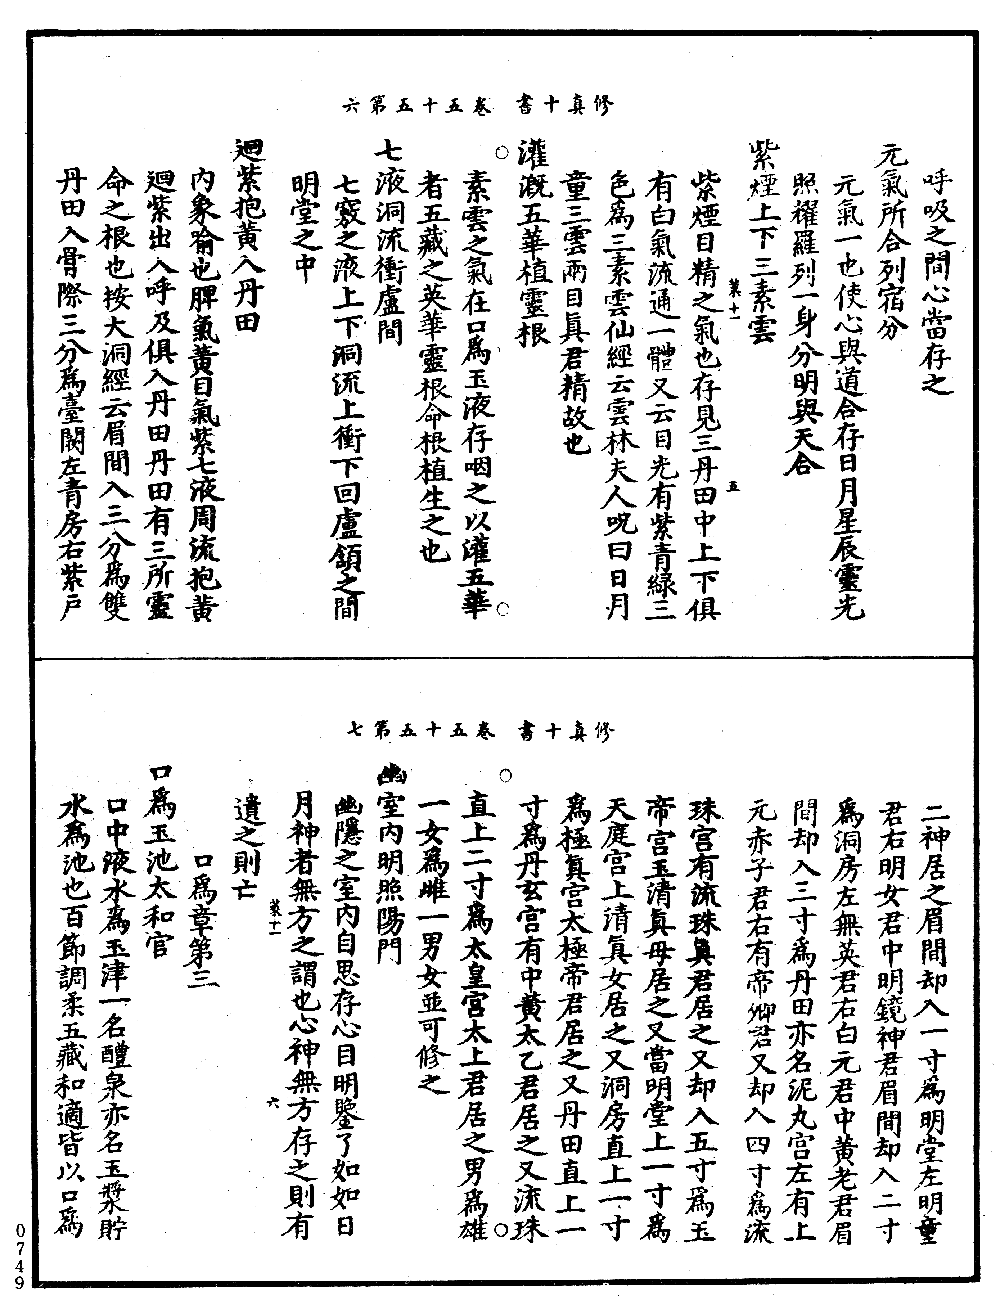 修真十書　卷五十五第六
呼吸之間心當存之
元氣所合列宿分
元氣一也使心與道合存日月星辰靈光
照耀羅列一身分明與天合
紫煙上下三素雲
菜十一
五
紫煙目精之氣也存見三丹田中上下俱
有白氣流通一體又云目光有紫青綠三
色爲三素雲仙經云雲林夫人呪曰日月
童三雲兩目眞君精故也
灌溉五華植靈根
○
素雲之氣在口爲玉液存咽之以灌五華
○
者五藏之英華靈根命根植生之也
七液洞流衝盧間
七竅之液上下洞流上衝下回盧頟之間
明堂之中
迴紫抱黃入丹田
內象喻也脾氣黃目氣紫七液周流抱黃
迴紫出入呼及俱入丹田丹田有三所靈
命之根也按大洞經云眉間入三分爲雙
丹田入骨際三分爲臺闕左青房右紫戶
修真十書　卷五十五第七
二神居之眉間却入一寸爲明堂左明童
君右明女君中明鏡神君眉間却入二寸
爲洞房左無英君右白元君中黃老君眉
間却入三寸爲丹田亦名泥丸宮左有上
元赤子君右有帝卿君又却入四寸爲流
珠宮有流珠眞君居之又却入五寸爲玉
帝宮玉清眞母居之又當明堂上一寸爲
天庭宮上清眞女居之又洞房直上一寸
爲極眞宮太極帝君居之又丹田直上一
寸爲丹玄宮有中黃太乙君居之又流珠
○
直上二寸爲太皇宮太上君居之男爲雄
○
一女爲雌一男女並可修之
幽室內明照陽門
幽隱之室內自思存心目明鑒了如如日
月神者無方之謂也心神無方存之則有
菜十一
六
遺之則亡
口爲章第三
口爲玉池太和官
口中液水爲玉津一名醴泉亦名玉漿貯
水爲池也百節調柔五藏和適皆以口爲
0749